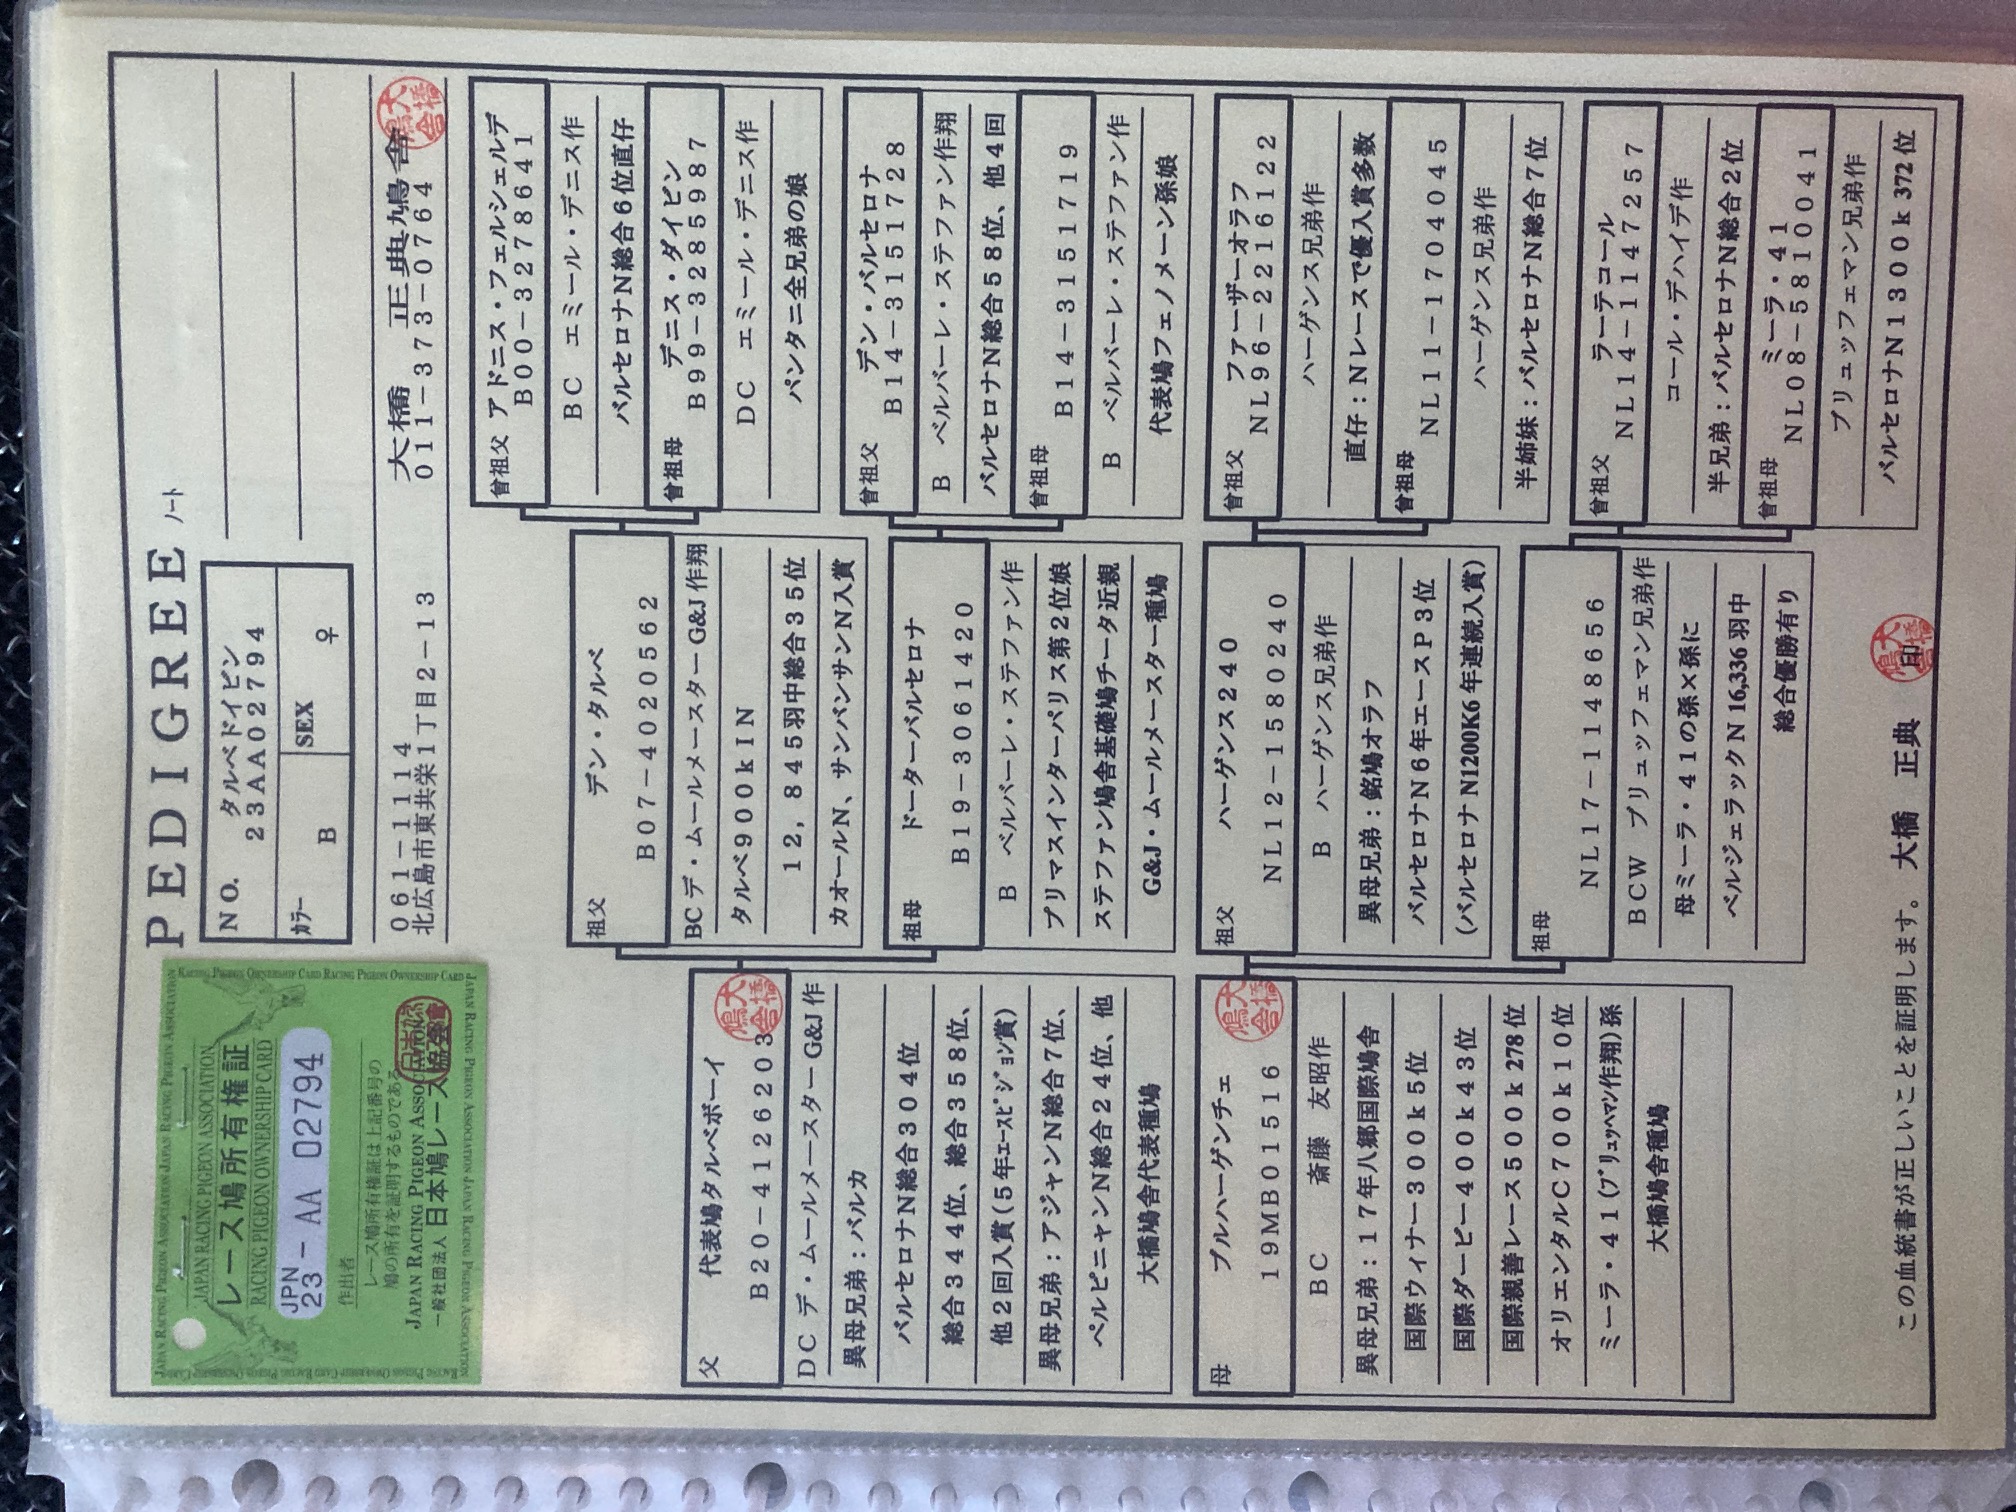 PEDIGREE ノート
JAPAN RACING PIGEON ASSOCIATION
レース鳩所有権証
RACING PIGEON OWNERSHIP CARD
JPN
23-AA 02794
作出者
レース鳩所有権証は上記番号の
鳩の所有を証明するものである
JAPAN RACING PIGEON ASSOCIATION
一般社団法人 日本鳩レース協会
NO. タルベドイビン
23AA02794
カラー B SEX ♀
061-1114
北広島市東共栄1丁目2-13
大橋 正典鳩舎
011-373-0764
父 代表鳩タルベボーイ
B20-4126203
DC デ・ムールメースターG&J作
異母兄弟：バルカ
バルセロナN総合304位
総合344位、総合358位、
他2回入賞(5年ｴｰｽﾋﾟｼﾞｮﾝ賞)
異母兄弟：アジャンN総合7位、
ペルピニャンN総合24位、他
大橋鳩舎代表種鳩
母 ブルハーゲンチェ
19MB01516
BC 斎藤 友昭作
異母兄弟：17年八郷国際鳩舎
国際ウィナー300k5位
国際ダービー400k43位
国際親善レース500k278位
オリエンタルC700k10位
ミーラ・41(ﾌﾞﾘｭｯﾍﾏﾝ作翔)孫
大橋鳩舎種鳩
祖父 デン・タルベ
B07-4020562
BCデ・ムールメースターG&J作翔
タルベ900kIN
12,845羽中総合35位
カオールN、サンバンサンN入賞
祖母 ドーターバルセロナ
B19-3061420
B ベルパーレ・ステファン作
プリマスインターパリス第2位娘
ステファン鳩舎基礎鳩チータ近親
G&J・ムールメースター種鳩
祖父 ハーゲンス240
NL12-1580240
B ハーゲンス兄弟作
異母兄弟：銘鳩オラフ
バルセロナN6年エースP3位
(バルセロナN1200K6年連続入賞)
祖母
NL17-1148656
BCW ブリュッフェマン兄弟作
母ミーラ・41の孫×孫に
ベルジェラックN16,336羽中
総合優勝有り
曾祖父 アドニス・フェルシェルデ
B00-3278641
BC エミール・デニス作
バルセロナN総合6位直仔
曾祖母 デニス・ダイピン
B99-3285987
DC エミール・デニス作
パンタニ全兄弟の娘
曾祖父 デン・バルセロナ
B14-3151728
B ベルパーレ・ステファン作翔
バルセロナN総合58位、他4回
曾祖母
B14-3151719
B ベルパーレ・ステファン作
代表鳩フェノメーン孫娘
曾祖父 ファーザーオラフ
NL96-2216122
ハーゲンス兄弟作
直仔：Nレースで優入賞多数
曾祖母
NL11-1704045
ハーゲンス兄弟作
半姉妹：バルセロナN総合7位
曾祖父 ラーテコール
NL14-1147257
コール・デハイデ作
半兄弟：バルセロナN総合2位
曾祖母 ミーラ・41
NL08-5810041
ブリュッフェマン兄弟作
バルセロナN1300k372位
この血統書が正しいことを証明します。 大橋 正典 印